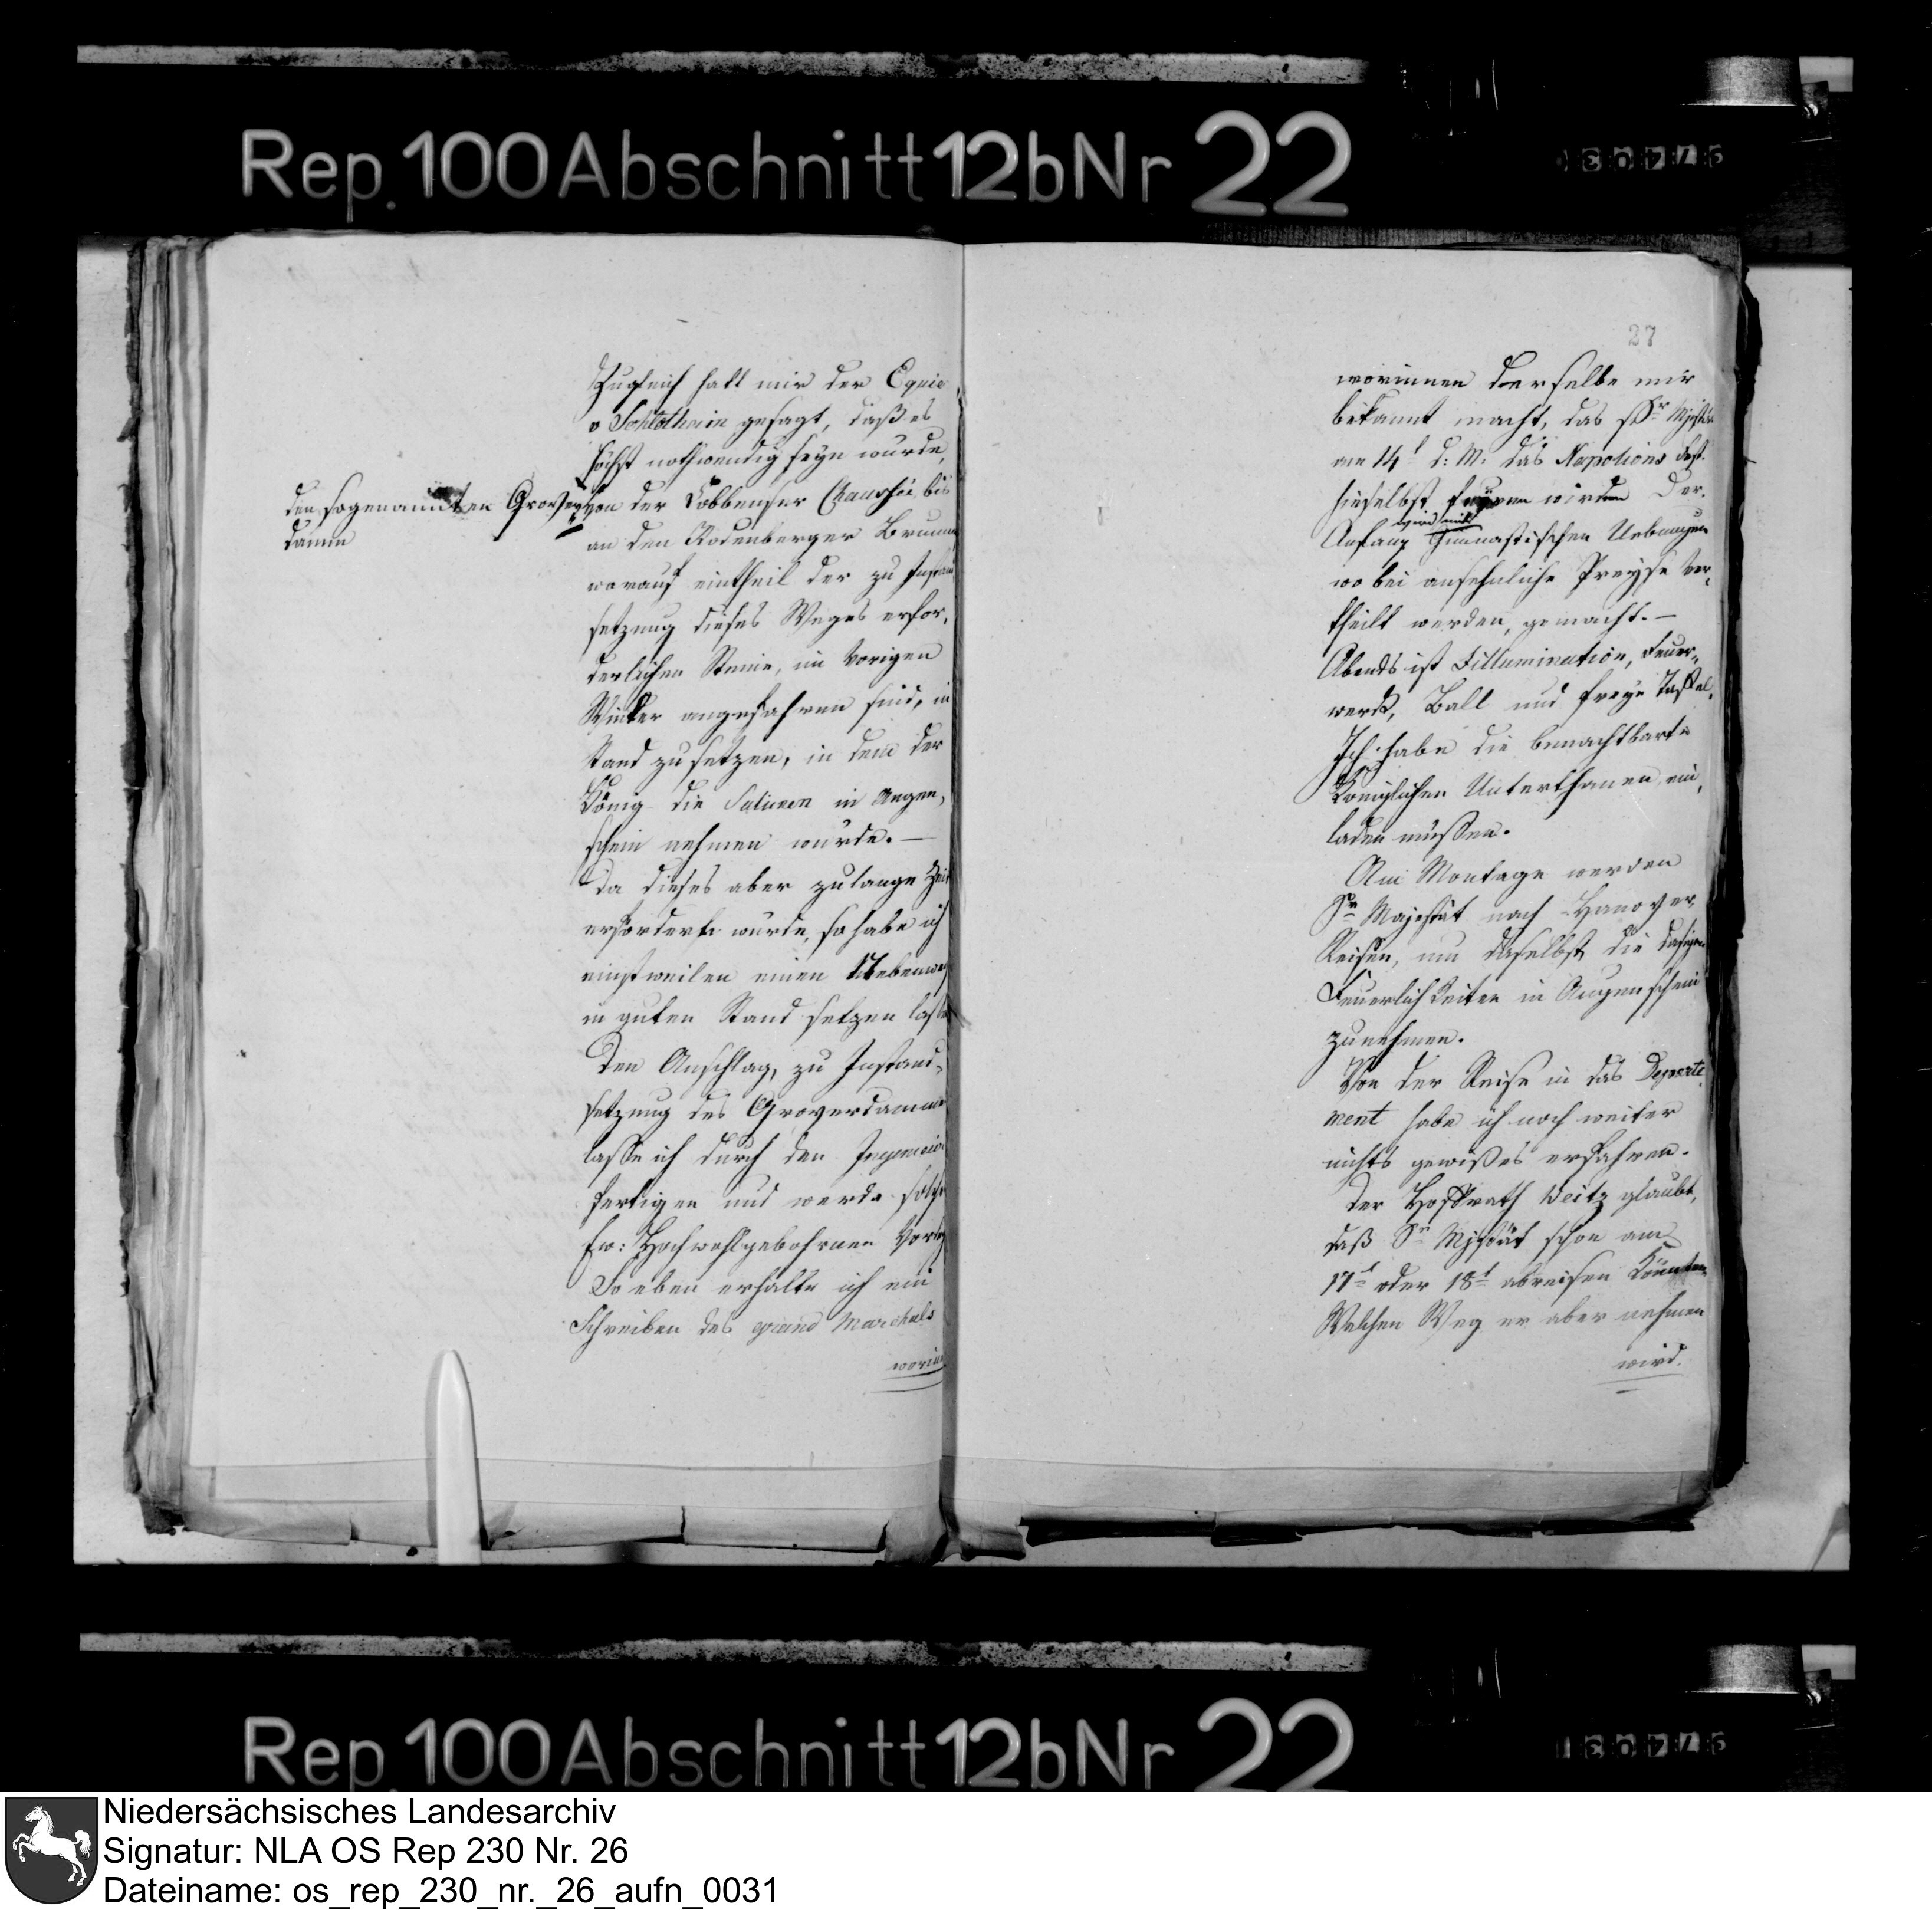 Rep. 100 Abschnitt 12b Nr 22
Zugleich hatt mir der Equie
v Schlotheim gesagt, daß es
höchst nothwendig seyn wurde,
den sogenannten Grover
damm
von der Lobbenser Chaussée bis
an den Rodenberger Brunnen
worauf eintheil der zu Instand
setzung dieses Weges erfor,
derlichen Steine, im Vorigen
Winter angefahren sind, in
Stand zu setzen, in dem der
König die Salinen in Augen,
schein nehmen würde. —
Da dieses aber zulange Zeit
erfordert wurde, so habe ich
einstweilen einen Nebenweg
in guten Stand setzen lassen
Den Anschlag, zu Instand,
setzung des Groverdammes
lasse ich durch den Ingenieur
fertigen und werde solchen
Ew: Hochwohlgebohrnen
So eben erhalte ich ein
Schreiben des grand Marchals
worin
27
worinnen derselbe mir
bekannt macht, das Sr Mjestät
am 14t d: M: das Napolions Fest
hieselbst feyren wirden Der
wird mit
Anfang Gimnastischen Uebungen
wo bei ansehnliche Preyse ver,
theilt werden, gemacht. —
Abends ist Jillumination, Feuer„
werk, Ball und freye Taffel.
Ich habe die benachtbarte
Königlichen Unterthanen ein,
laden müssen.
Am Montage werden
Sr Majestät nach Hanover
Reisen, um daselbst die dasigen
Feuerlichkeiten in Augenschein
zunehmen.
Von der Reise in das Departe
ment habe ich noch weiter
nichts gewißes erfahren.
Der Hoffrath Weitz glaubt,
daß Sr Mjstät schon am
17t oder 18t abreisen könnten
Welchen Weg er aber nehmen
wird.
Rep. 100 Abschnitt 12b Nr 22
Niedersächsisches Landesarchiv
Signatur: NLA OS Rep 230 Nr. 26
Dateiname: os_rep_230_nr._26_aufn_0031